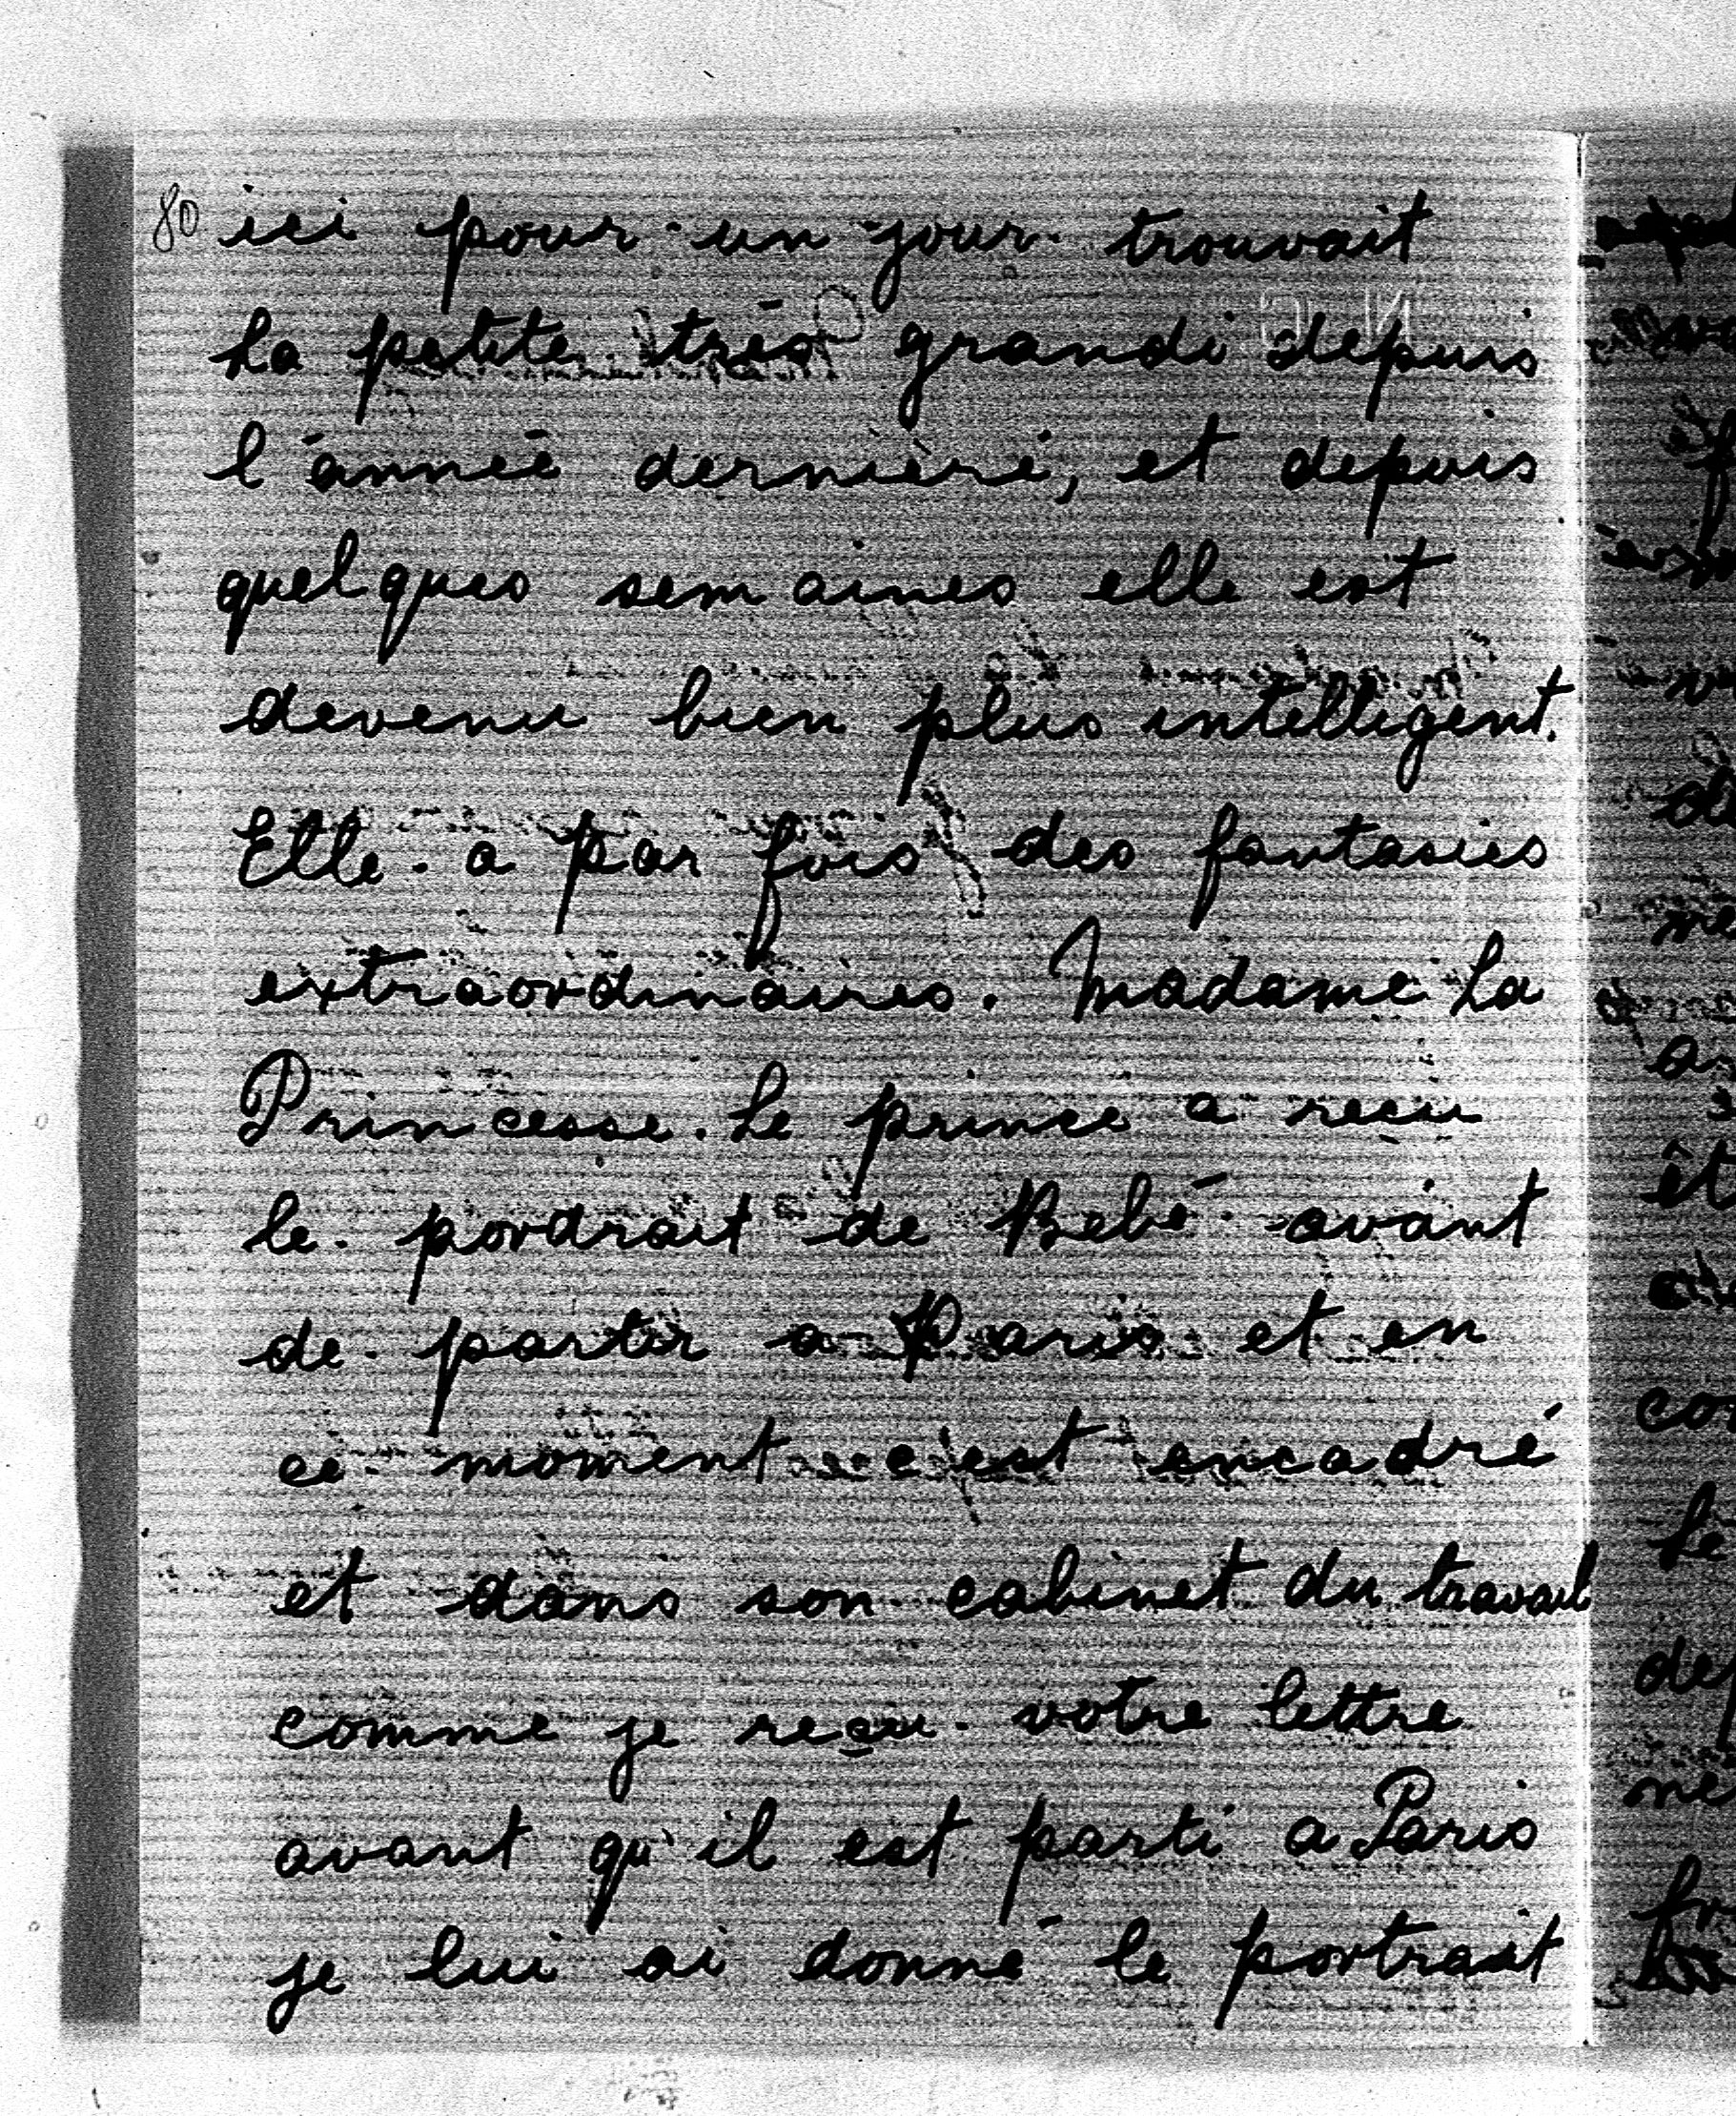 80 ici pour un jour trouvait
La petite très grandi depuis
l'année dernière, et depuis
quelques semaines elle est
devenu bien plus intelligent.
Elle a par fois des fantasies
extraordinaires. Madame La
Princesse. Le prince a reçu
le pordrait de Bebé avant
de partir a Paris et en
ce moment c'est encadré
et dans son cabinet du travail
comme je reçu votre lettre
avant qu'il est parti a Paris
je lui ai donné le portrait